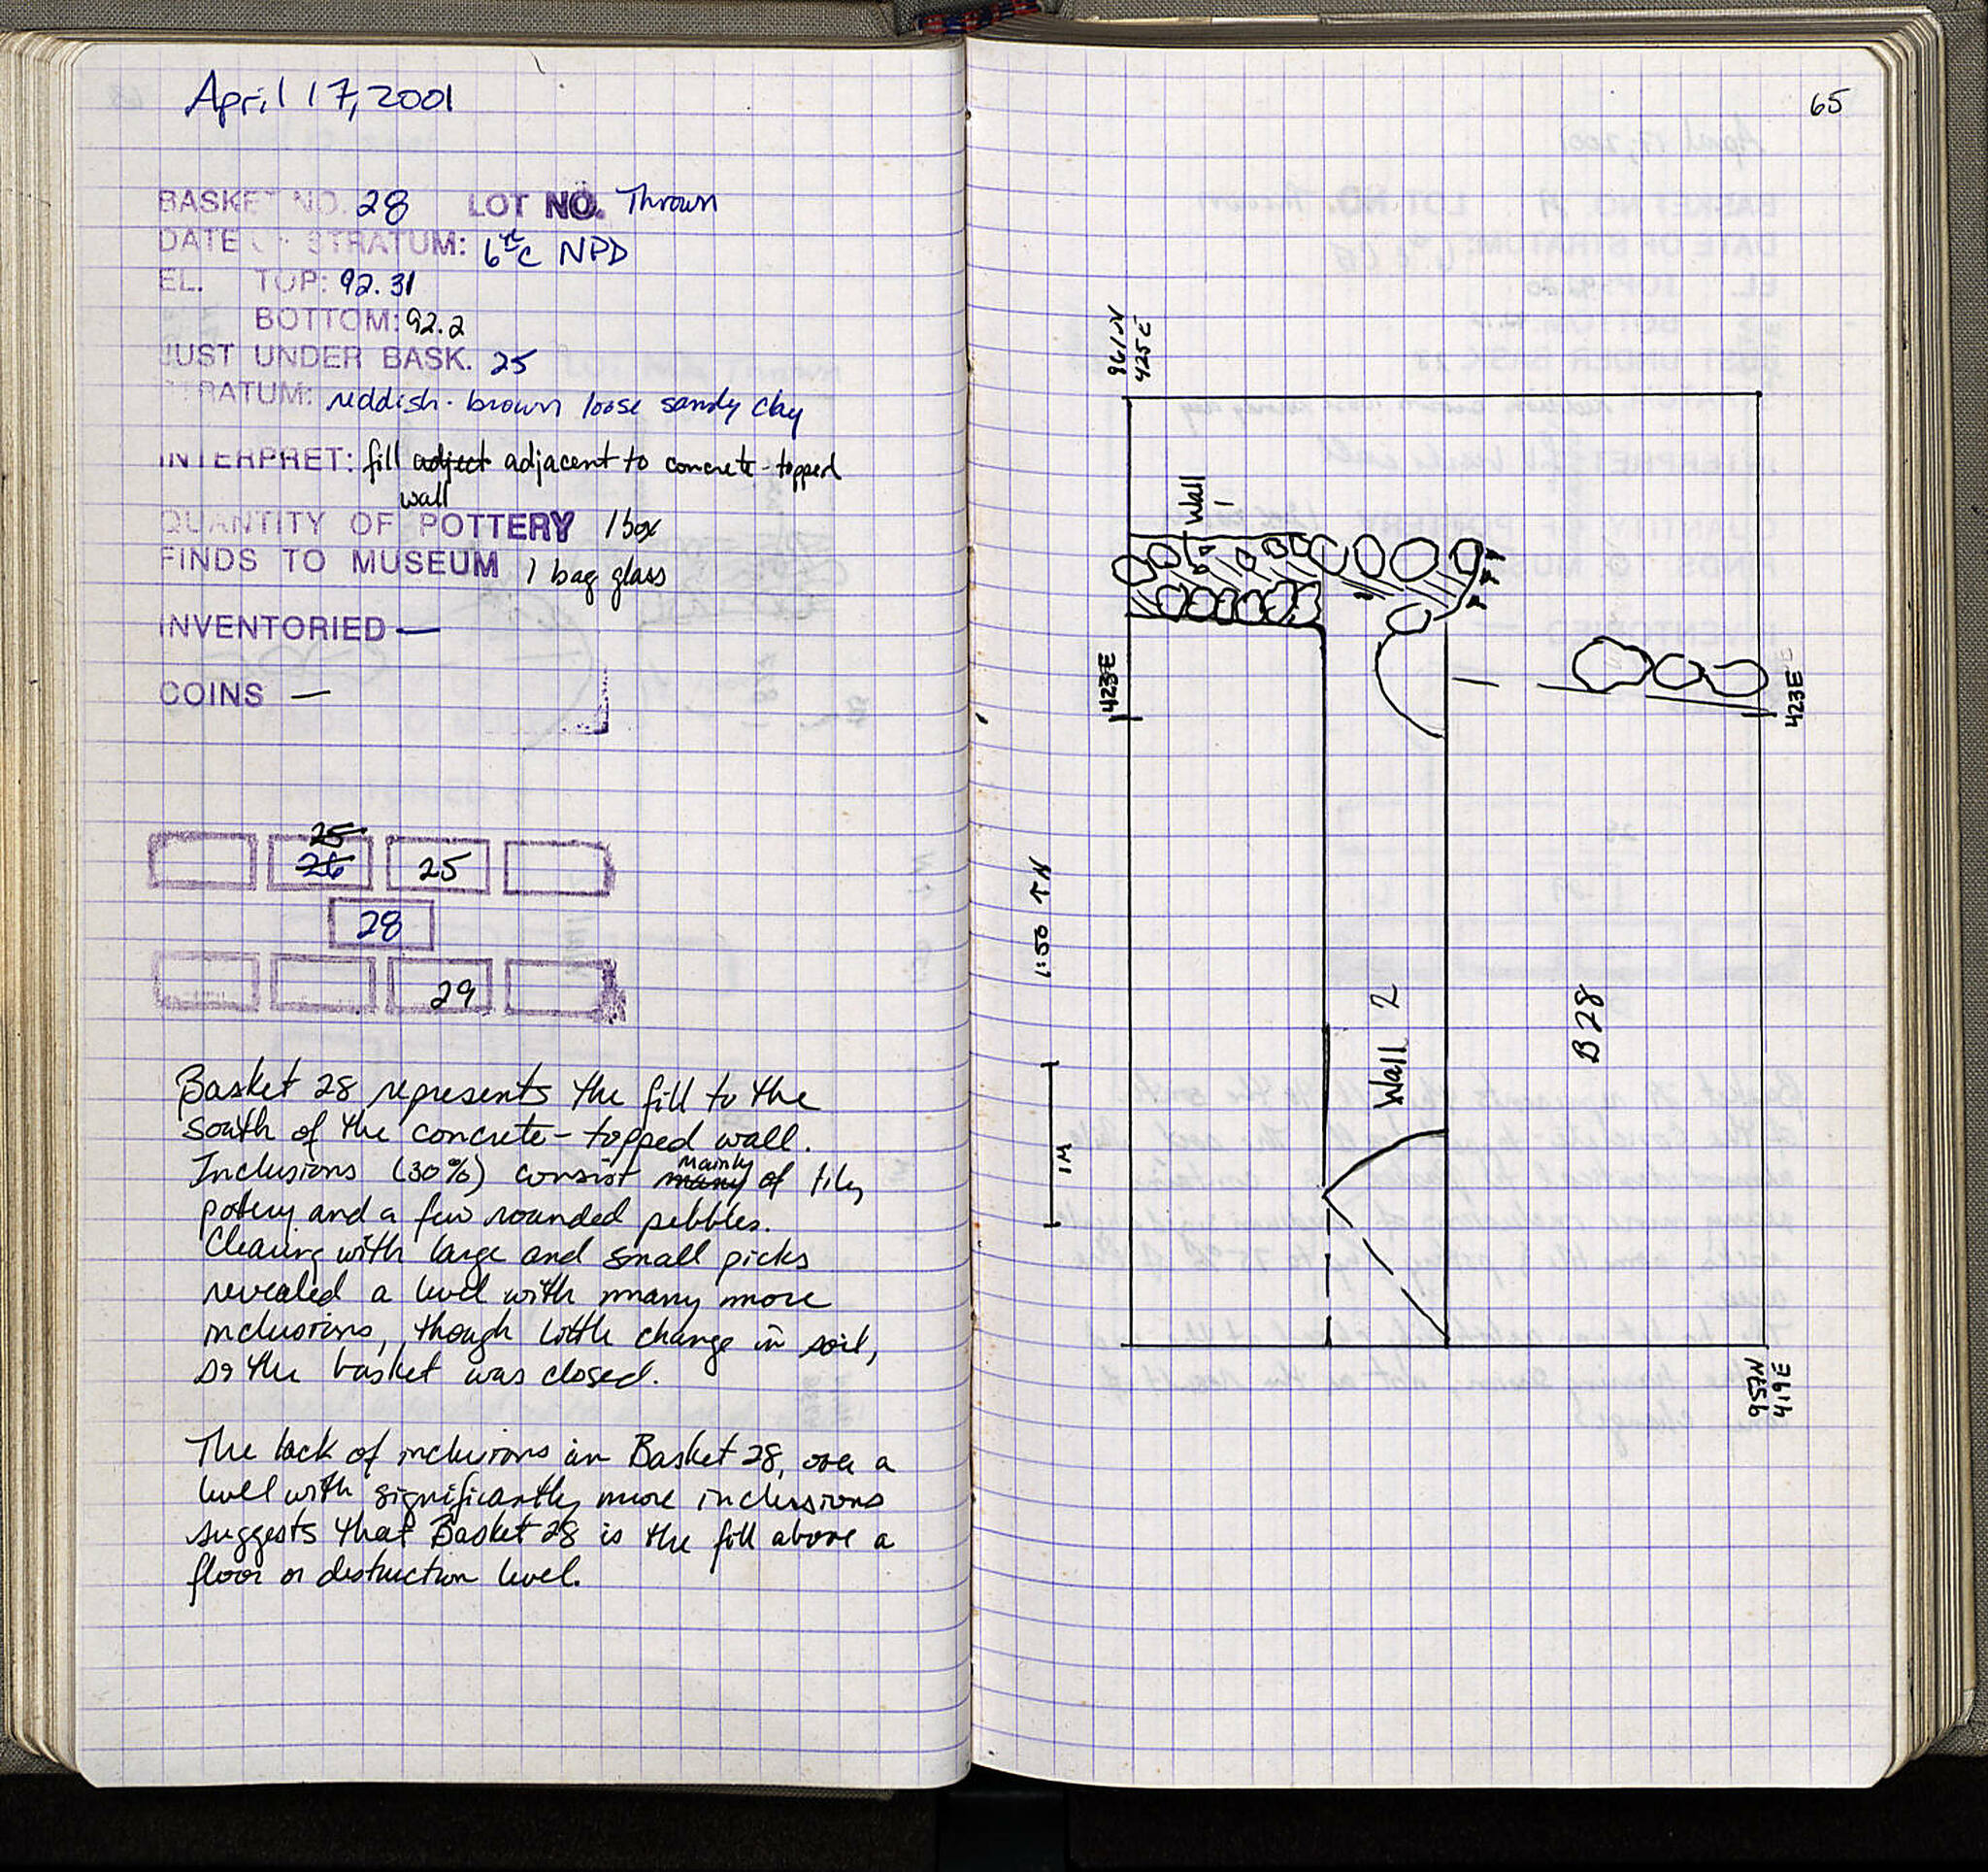 April 17, 2001
BASKET NO. 28 LOT NO. Thrown
DATE OF STRATUM: 6th c NPD
EL. TOP: 92.31
BOTTOM: 92.2
JUST UNDER BASK. 25
STRATUM: reddish-brown loose sandy clay
INTERPRET: fill adject adjacent to concrete-topped
wall
QUANTITY OF POTTERY 1 box
FINDS TO MUSEUM 1 bag glass
INVENTORIED —
COINS —
25
26 25
28
29
Basket 28 represents the fill to the
south of the concrete-topped wall.
mainly
Inclusions (30%) consist many of tile,
pottery and a few rounded pebbles.
Clearing with large and small picks
revealed a level with many more
inclusions, though little change in soil,
so the basket was closed.
The lack of inclusions in Basket 28, over a
level with significantly more inclusions
suggests that Basket 28 is the fill above a
floor or destruction level.
65
961N
425E
Wall
1
423E
423E
1:50 ↑N
1M
Wall 2
B28
957N
419E